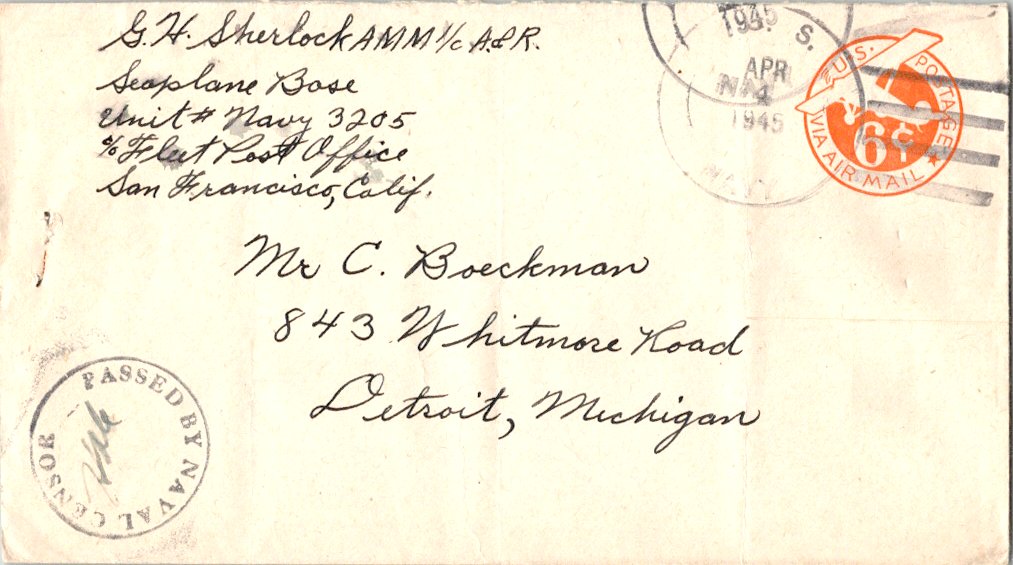 G.H. Sherlock AMM 1/c A.&R.
Seaplane Base
Unit # Navy 3205
c/o Fleet Post Office
San Francisco, Calif.
1945
U. S.
APR
4
1945
NAVY
U.S. POSTAGE
6¢
VIA AIR MAIL
Mr C. Boeckman
843 Whitmore Road
Detroit, Michigan
PASSED BY NAVAL CENSOR